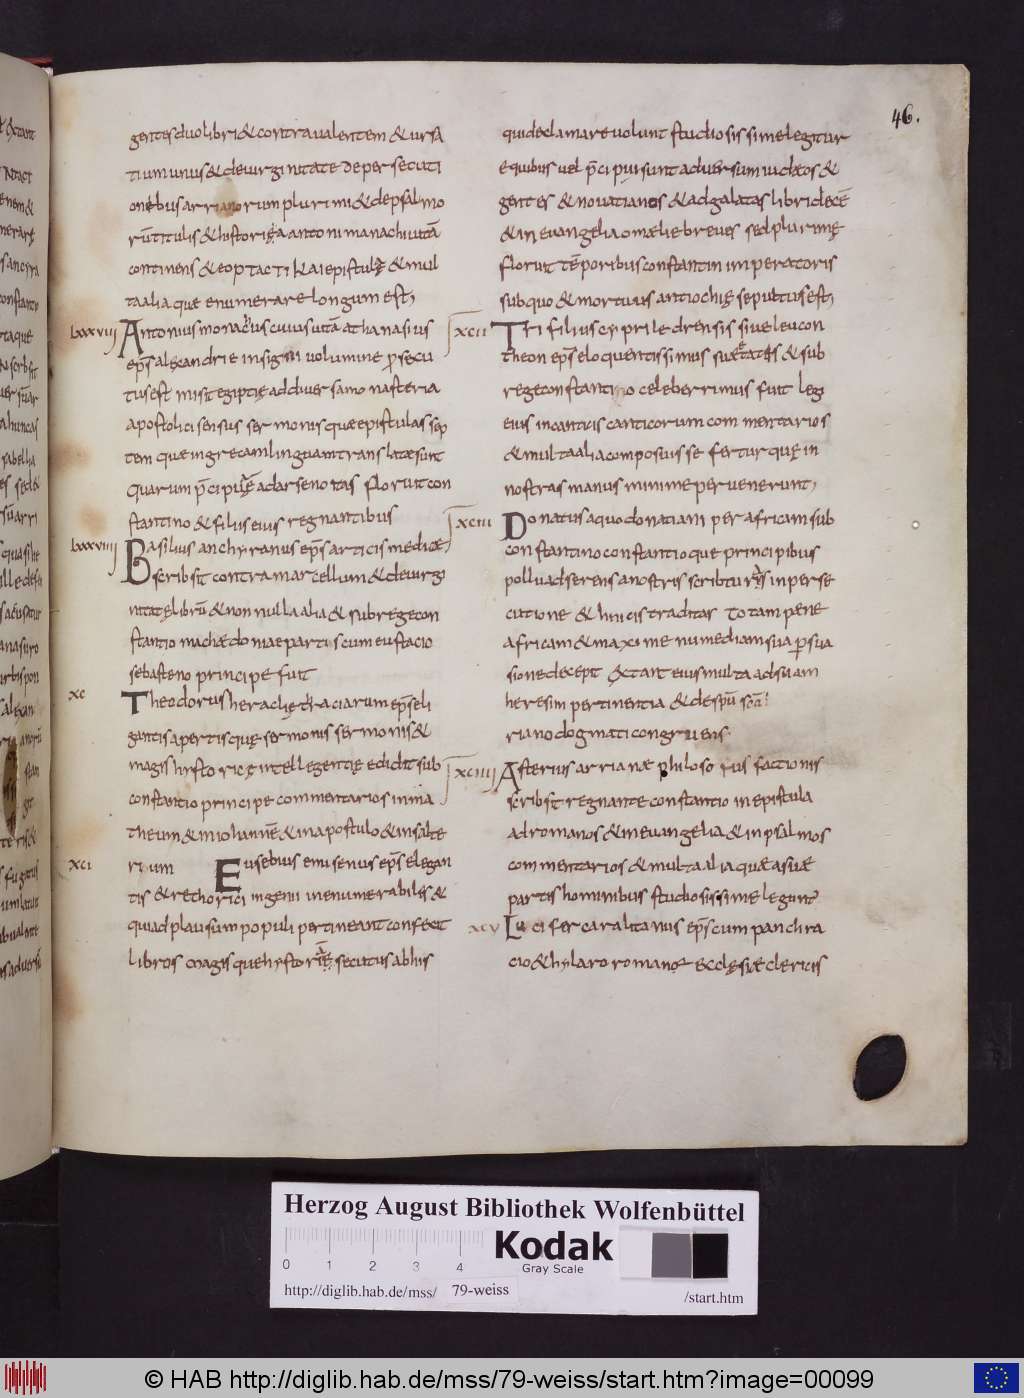 46.
gentes duo libri & contra ualentem & ursa
tium unus & de uirginitate de persecuti
onibus arrianorum plurimi & de psalmo
rū titulis & historię a antoni manachi uitā
continens & eoptactikai epistulę & mul
ta alia que enumerare longum est,
lxxxviii Antonius monachus cuius uitā athanasius
ep̄s alexandrie insigni volumine p̄secu
tus est misit egiptię ad diuersa monasteria
apostolici sensus sermonis quae epistulas sep
tem que in grecam linguam translatae sunt
quarum p̄cipuę ad arsenoitas floruit con
stantino & filius eius regnantibus
lxxxviiii Basilius anchyranus ep̄s articis medicae,
scribsit contra marcellum & de uirgi
nitate librū & non nulla alia & sub rege con
stantio machedoniae partis cum eustacio
sebasteno principe fuit
xc Theodorus heraclię traciarum ep̄s eli
gantis apertisquę sermonis sermonis &
magis hystoricę intellegentię edidit sub
constantio principe commentarios in ma
theum & in iohannē & in apostulo & in salte
rium
xci Eusebius emisenus ep̄s elegan
tis & rethorici ingenii inenumerabiles &
qui ad plausum populi pertineant confecit
libros magisque hystoriā secutus ab his
qui declamare uolunt studiosissime legitur
e quibus uel p̄cipui sunt aduersum iudeos &
gentes & nouatianos & ad galatas libri decē
& in euangelia omelie breues sed plurimę
floruit tēporibus constantini imperatoris
sub quo & mortuus antiochię sepultus est,
xcii Trifilius cypri ledrensis siue leucon
theon ep̄s eloquentissimus suę etatis & sub
rege constantino celeberrimus fuit legi
eius in canticis canticorum commentarios
& multa alia composuisse fertur quę in
nostras manus minime peruenerunt,
xciii Donatus a quo donatiani per africam sub
constantino constantioque principibus
polluad serens a nostris scribturas in perse
cutione & hnicis traditas totam paene
africam & maxime numediam sua p̄sua
sione decepit extant eius multa ad suam
heresim pertinentia & de sp̄u sc̄o
riano dogmati congruens.
xciiii Asterius arrianae philosophus factionis
scribsit regnante constantio in epistula
ad romanos & in euangelia & in psalmos
commentarios & multa alia quae a suae
partis hominibus studiosissime legunt̄
xcv Lucifer caralitanus ep̄s cum panchra
cio & hylaro romanę ecclęsiae clericis
Herzog August Bibliothek Wolfenbüttel
0 1 2 3 4
Kodak
Gray Scale
http://diglib.hab.de/mss/ 79-weiss /start.htm
© HAB http://diglib.hab.de/mss/79-weiss/start.htm?image=00099